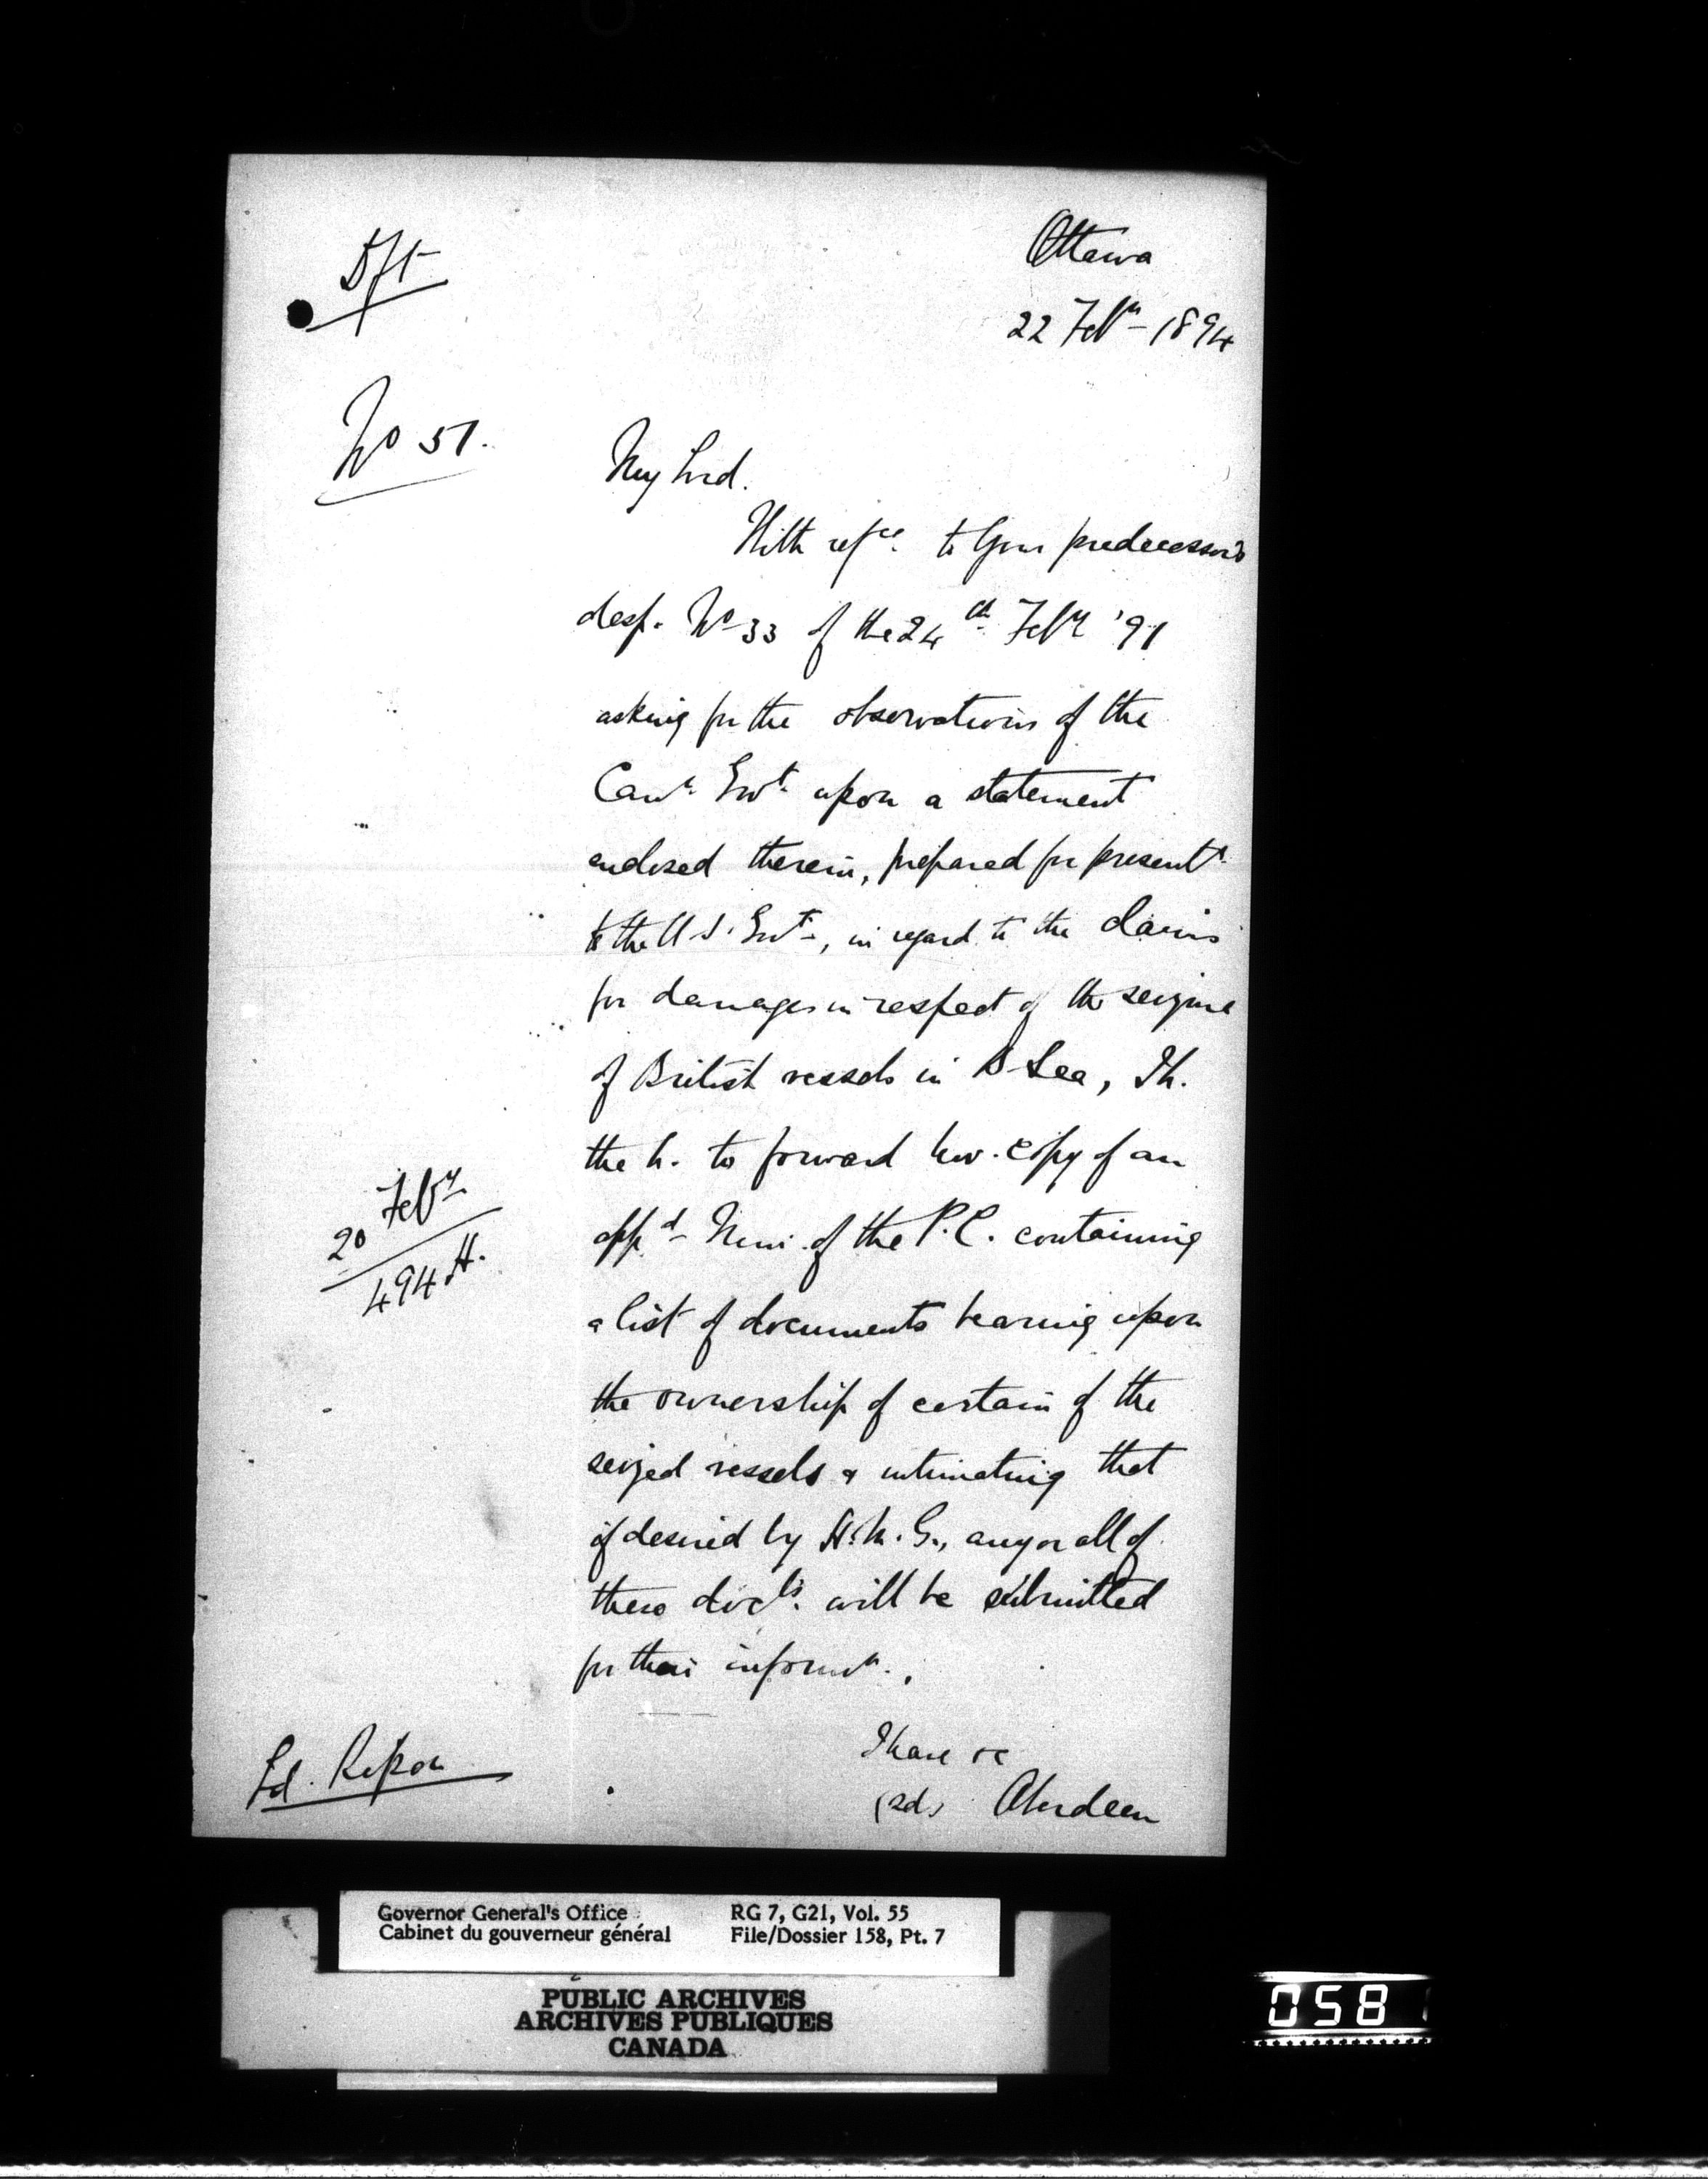 Dft
Ottawa
22 Feby - 1894
No 51.
My Lord.
With refce. to Your predecessor's
desp. No 33 of the 24th Feby '91
asking for the observations of the
Cann. Govt. upon a statement
enclosed therein, prepared for presentn.
to the U.S. Govt -, in regard to the claims
for damages in respect of the seizure
of British vessels in B. Sea, I h.
the h. to forward hw. copy of an
appd - Min. of the P.C. containing
20 Feby
494 H.
a list of documents bearing upon
the ownership of certain of the
seized vessels & intimating that
if desired by H.M.G., any or all of
these docts. will be submitted
for their informn.
I have &c
Ld. Ripon
(sd) Aberdeen
Governor General's Office
Cabinet du gouverneur général
RG 7, G21, Vol. 55
File/Dossier 158, Pt. 7
PUBLIC ARCHIVES
ARCHIVES PUBLIQUES
CANADA
058